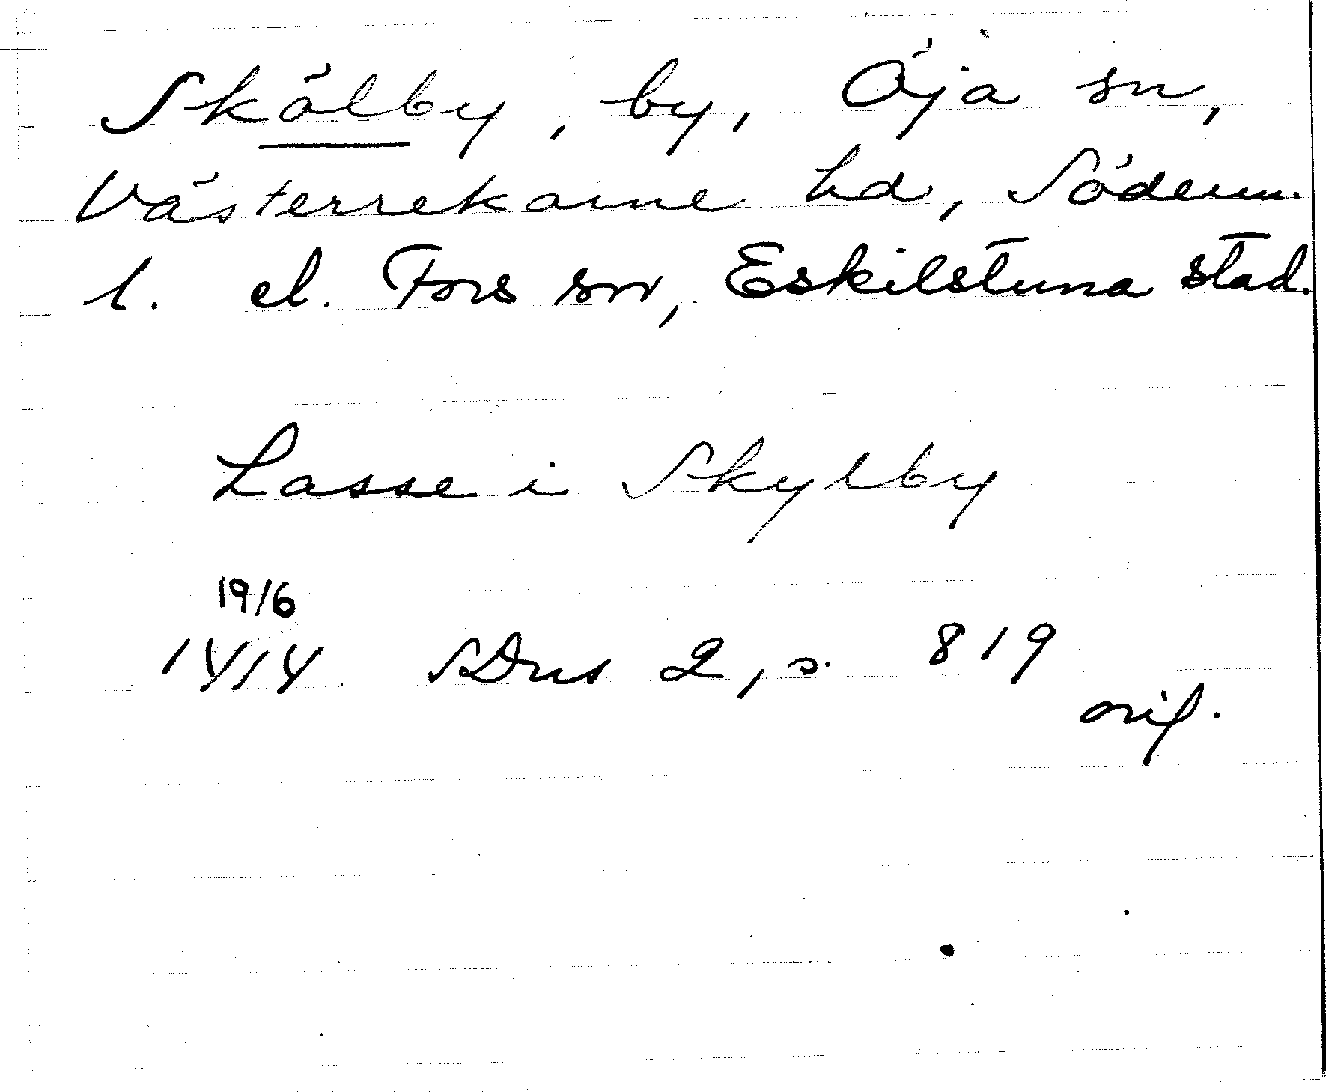 Skölby, by, Öja sn,
Västerrekarne hd, Söderm.
l. el. Fors sn, Eskilstuna stad.
Lasse i Skylby
19/6
1414 SDns 2, s. 819
orig.